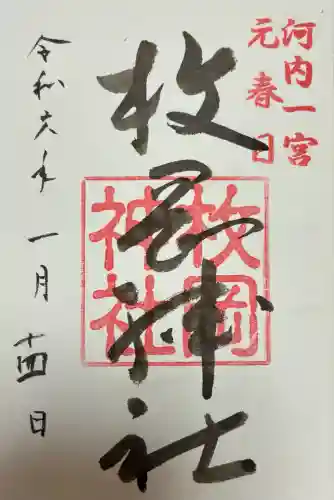 河内一宮
元春日
枚岡神社
枚岡
神社
令和六年 一月 十四日